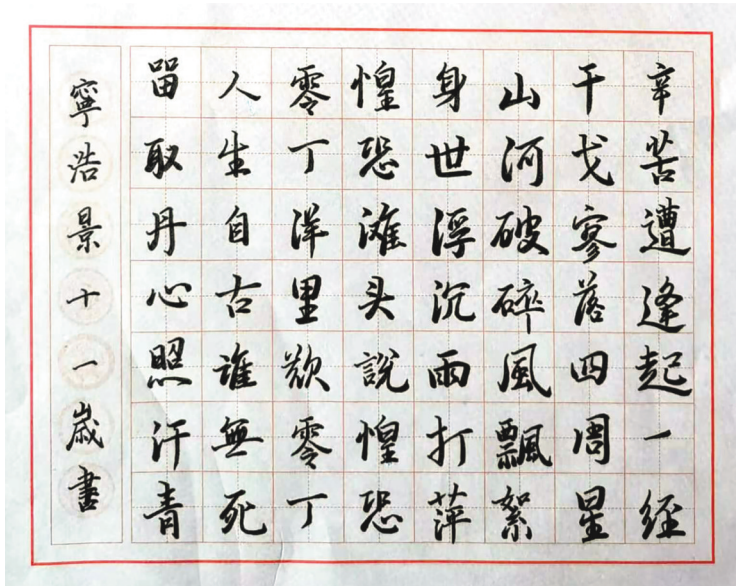 辛苦遭逢起一经
干戈寥落四周星
山河破碎風飄絮
身世浮沉雨打萍
惶恐滩头說惶恐
零丁洋里歎零丁
人生自古谁無死
留取丹心照汗青
寧浩景十一歲書